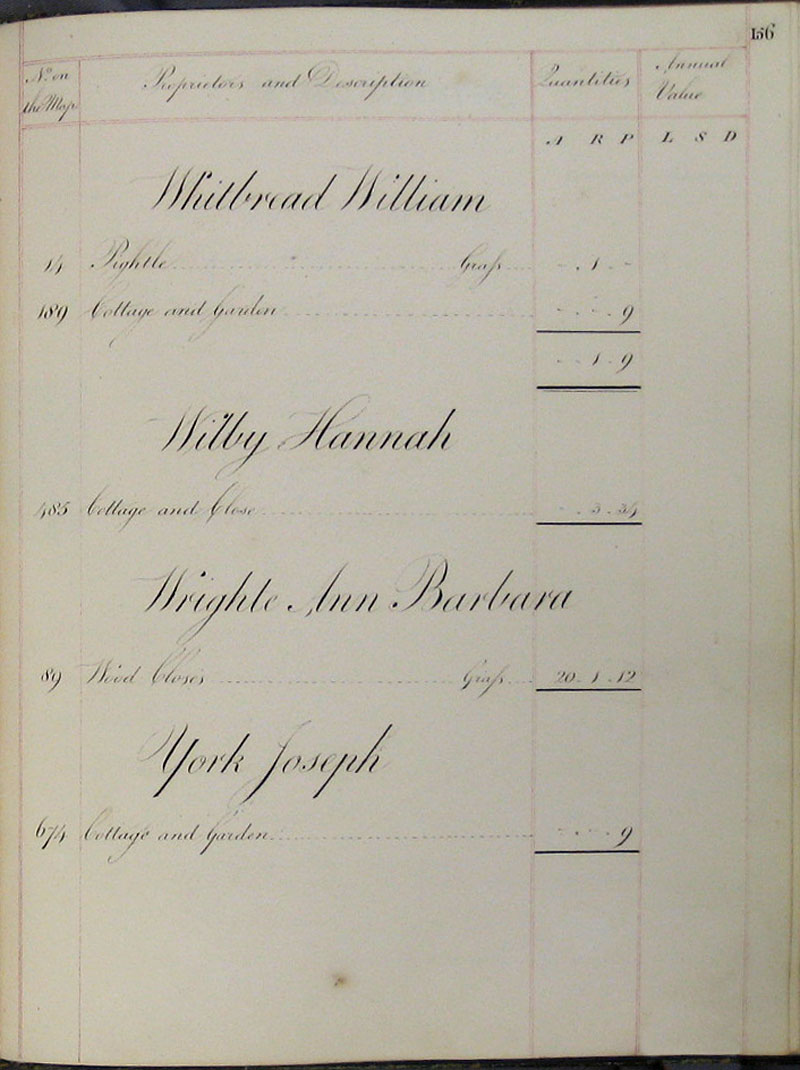 156
No on the Map Proprietors and Description Quantities Annual Value
A R P L S D
Whitbread William
14 Pightle Grass - 1 -
189 Cottage and Garden - - 9
- 1 9
Wilby Hannah
485 Cottage and Close - 3 34
Wrighte Ann Barbara
89 Wood Closes Grass 20 1 12
York Joseph
674 Cottage and Garden - - 9